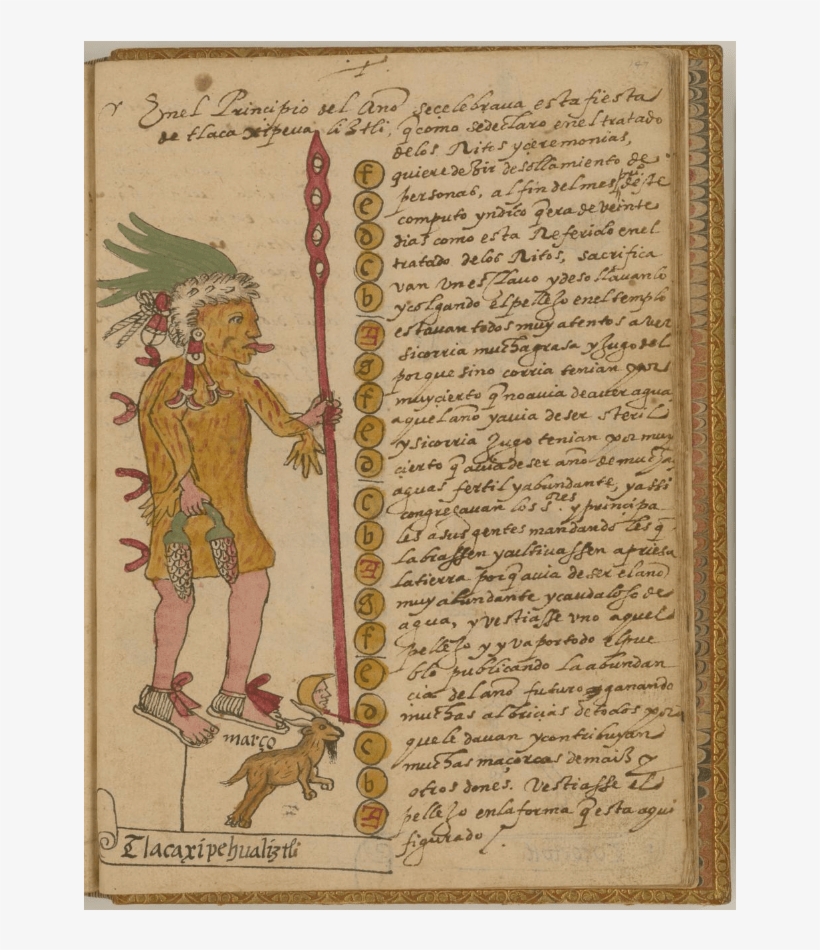 Enel Principio del Año secelebraua esta fiesta
de tlaca xipeua liztli, q̃ como sedeclaro enel tratado
delos Ritos y çeremonias,
quiere dezir desollamiento de
personas, al fin del mes deste
computo yndico q̃ era de veinte
dias como esta Referido enel
tratado delos Ritos, sacrifica
van vn esclauo y desollauanlo
y colgando el pellejo enel templo
estauan todos muy atentos a ver
si corria mucha grasa y jugo del
porque si no corria tenian por
muy cierto q̃ no auia de auer agua
aquel año y auia de ser steril
y si corria jugo tenian por muy
cierto q̃ auia de ser año de mucha
aguas fertil y abundante, y assi
congregauan los s.ores y principa
les a sus gentes mandandoles q
labrassen y cultiuassen apriesa
la tierra por q̃ auia de ser el año
muy abundante y caudaloso de
agua, y vestiasse vno aquel
pellejo y yva por todo el pue
blo publicando la abundan
cia del año futuro ganando
muchas albricias de todos por
que le dauan y contribuyan
muchas maçorcas de maiz y
otros dones. Vestiasse el
pellejo en la forma q̃ esta aqui
figurado
f
e
d
c
b
A
g
f
e
d
c
b
A
g
f
e
d
c
b
A
março
Tlacaxipehualiztli